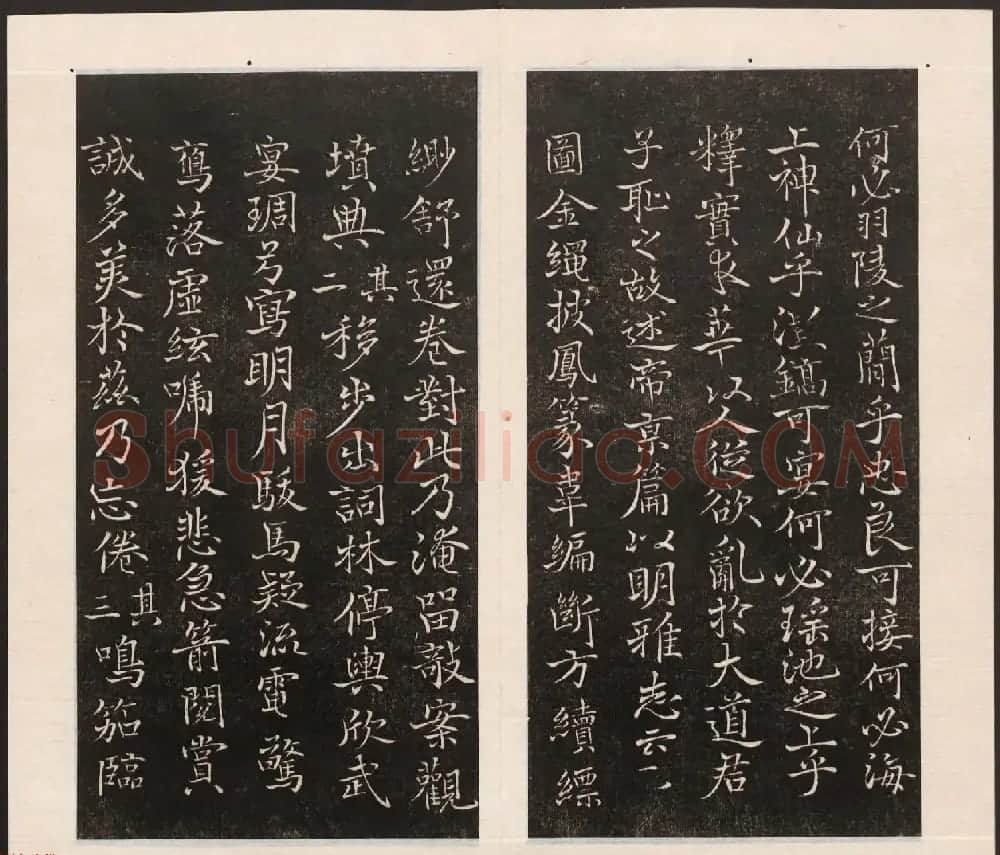 何必羽陵之簡乎忠良可接何必海
上神仙乎灃鎬可宴何必瑤池之上乎
釋實求華以人從欲亂於大道君
子恥之故述帝京篇以明雅志云尒
圖金繩披鳳篆韋編斷方續縹
緲舒還卷對此乃淹留敧案觀
墳典其二移步出詞林停輿欣武
宴琱弓寫明月駿馬疑流電驚
鴈落虛弦啼猨悲急箭閱賞
誠多美於茲乃忘倦其三鳴笳臨
Shufaziliao.COM